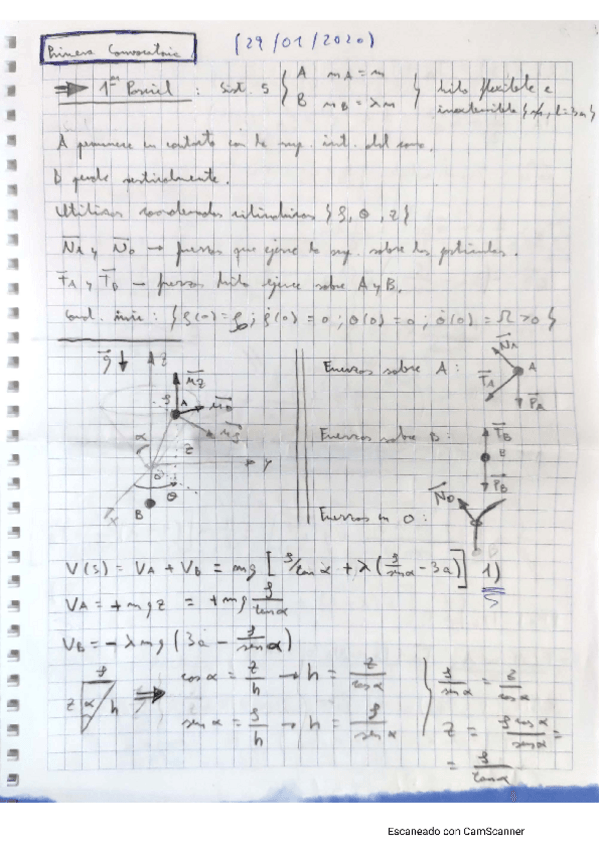 Primera Convocatoria. (29/01/2020)
⇒ 1er Parcial : Sist. S { A m_A = m
B m_B = λm } hilo flexible e
inextensible {m, l=3a}
A permanece en contacto con la sup. int. del cono.
B pende verticalmente.
Utilizar coordenadas cilíndricas {ρ, θ, z}
N_A y N_O → fuerzas que ejerce la sup. sobre las partículas.
T_A y T_B — fuerzas hilo ejerce sobre A y B.
Cond. inic: {ρ(0)=ρ₀; ρ̇(0)=0; θ(0)=0; θ̇(0)=Ω>0}
g ↓ z
u_z
ρ A u_θ
u_ρ
α z
O y
x θ
B
Fuerzas sobre A: N_A A
T_A P_A
Fuerzas sobre B: T_B
B
P_B
N_O
Fuerzas en O:
V(ρ) = V_A + V_B = mg [ρ/tan α + λ(ρ/sen α - 3a)] 1)
V_A = +mgz = +mg ρ/tan α
V_B = -λmg (3a - ρ/sen α)
ρ
z α h ⇒ cos α = z/h → h = z/cos α
sen α = ρ/h → h = ρ/sen α
ρ/sen α = z/cos α
z = ρ cos α/sen α =
= ρ/tan α
Escaneado con CamScanner